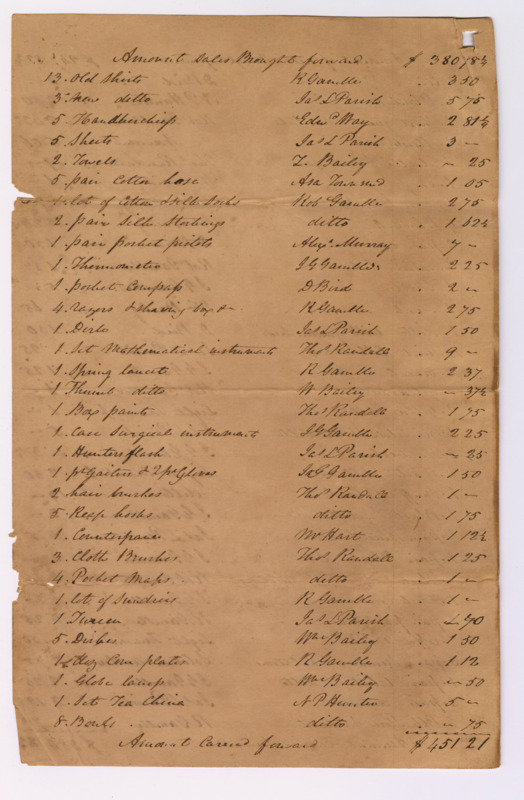 Amount Sales Brought forward $ 380,78½
13. Old Shirts R Gamble . 3 50
3. ditto Jas L Parish . 5 75
5 Handkerchiefs Edwd Way . 2 81¼
5 Sheets Jas L Parish . 3 –
2. Towels Z. Bailey . – 25
5. pair Cotton hose Asa Townsend . 1 05
1 lot of Cotton & Silk Socks Robt Gamble . 2 75
2. pair Silk Stockings ditto . 1.62½
1. pair pocket pistols Alexr. Murray . 7 –
1. Thermometer J G Gamble . 2 25
1. pocket Compass D Bird . 2 –
4. razors & shaving box &c R Gamble . 2 75
1. Dirk Jas L Parish . 1 50
1. Set Mathematical instruments Thos Randall . 9 –
1. Spring lancet R Gamble . 2 37
1 Thumb ditto W Bailey . – 37½
1. Box paints Thos Randall . 1 75
1. Case Surgical instruments J G Gamble . 2 25
1. Hunters flask Jas L Parish . – 25
1. pr Gaiters & 2 pr Gloves Jn G Gamble . 1 50
2 hair brushes Thos Randall . 1 –
5 Keep books ditto . 1 75
1. Counterpane Wm Hart . 1 12½
3. Cloth Brushes Thos Randall . 1 25
4. Pocket Maps ditto . 1 –
1. lot of Sundries R Gamble . 1 –
1 Tureen Jas L Parish . 40
5. Dishes Wm Bailey . 1 50
1½ doz Com plates R Gamble . 1 12
1. Globe lamp Wm Bailey – 50
1. Set Tea China N P Hunter . 5 –
8 Bowls ditto . – 75
Amount Carried forward $ 451 21